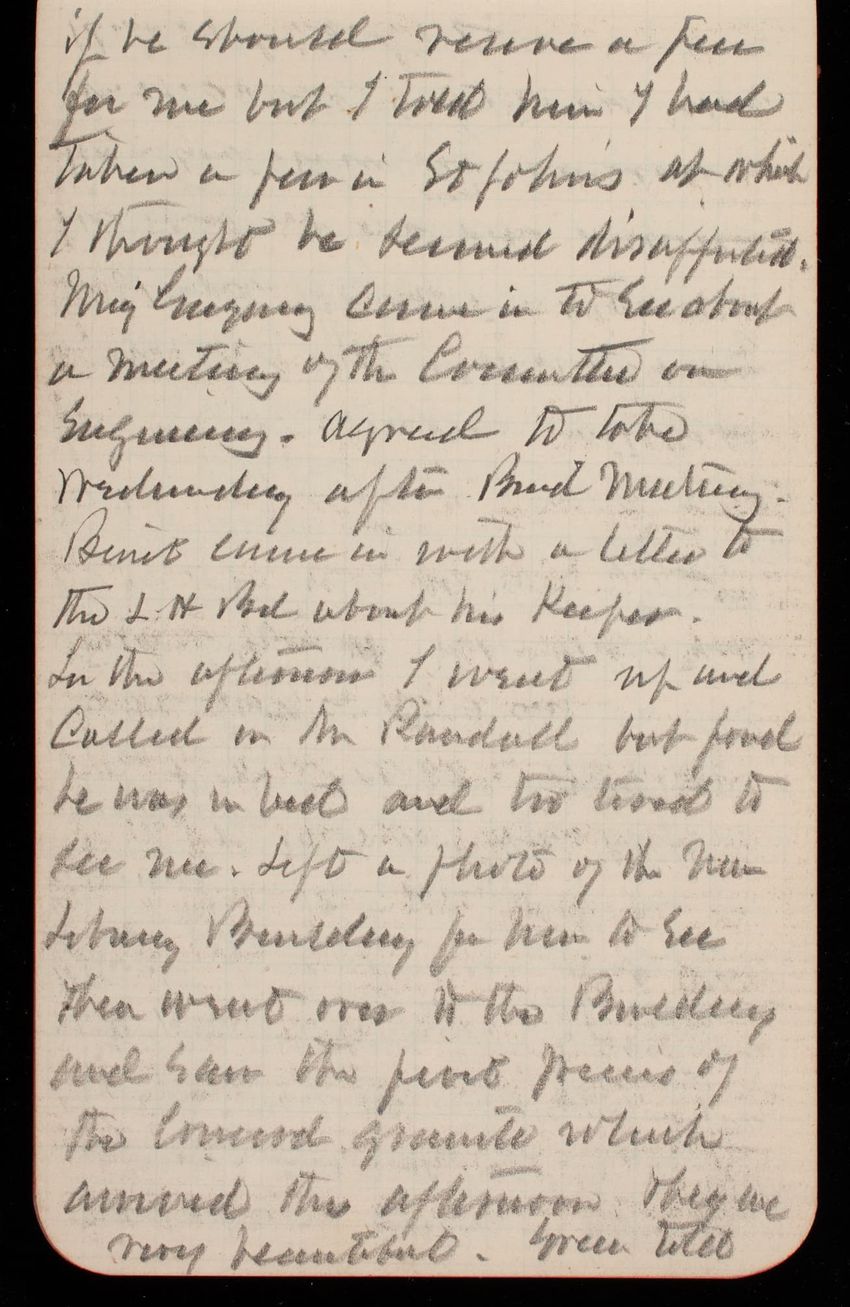 if he should reserve a pew
for me but I told him I had
taken a pew in St John's at which
I thought he seemed disappointed.
Maj Gregory came in to see about
a meeting of the Committee on
Engineering. Agreed to take
Wednesday after Board Meeting.
came in with a letter to
the L H Bd about his Keeper.
In the afternoon I went up and
Called on Mr Randall but found
he was in bed and too tired to
see me. Left a photo of the New
Library Building for him to see
Then went over to the Building
and saw the first pieces of
the Concord granite which
arrived this afternoon They are
very beautiful. Green told